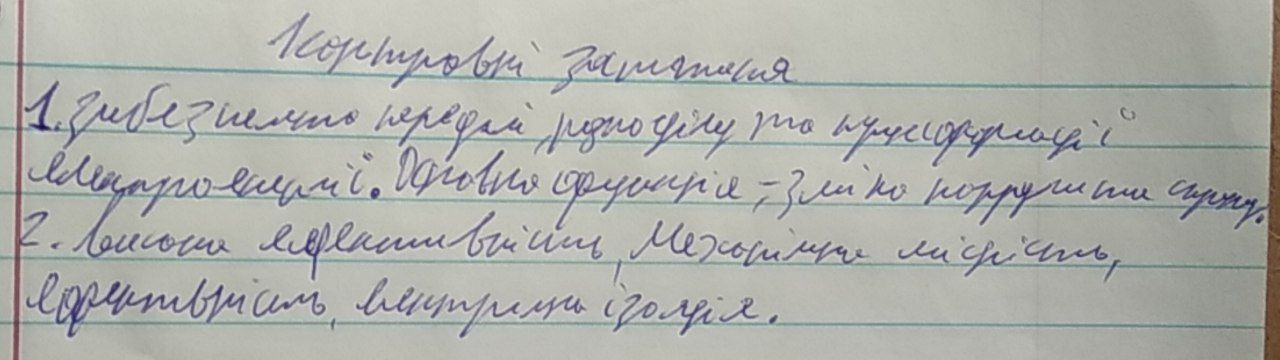 Контрольні запитання
1. Забезпечення передачі, розподілу та трансформації
електроенергії. Основна функція - зміна напруги та струму.
2. Висока ефективність, механічна міцність,
ефективність, електрична ізоляція.